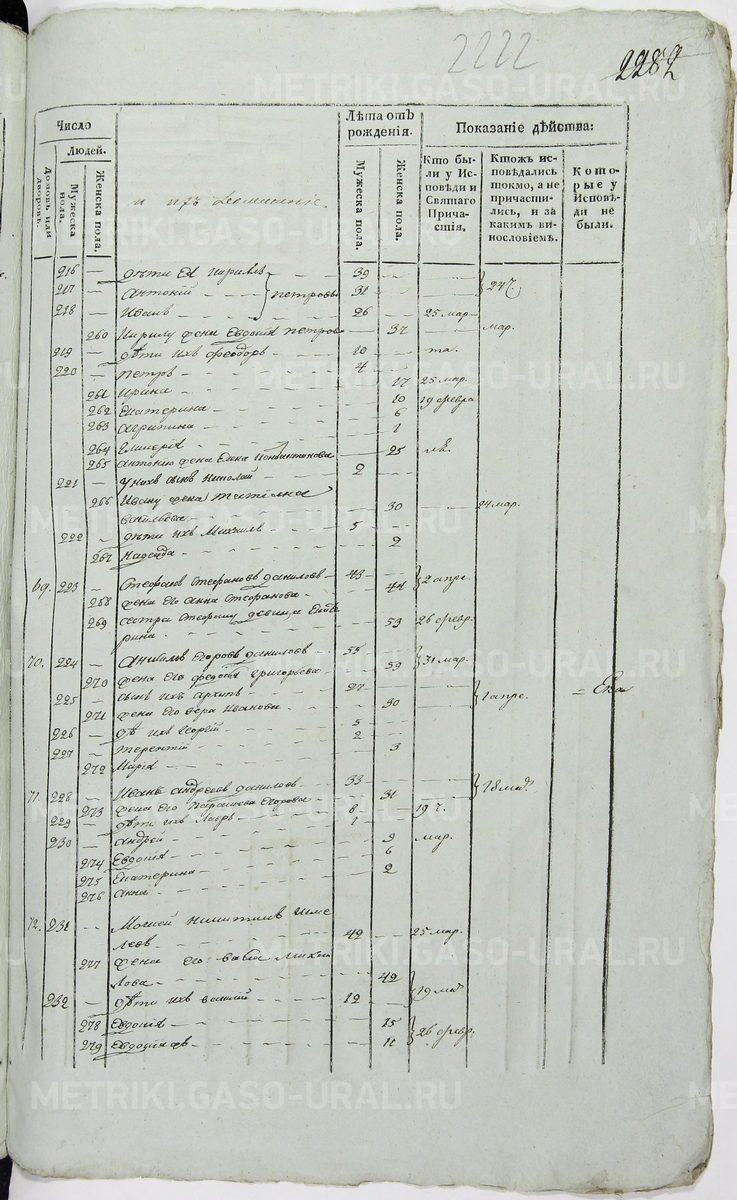 2222
2282
Число
Людей.
Домовъ или дворовъ.
Мужеска пола.
Женска пола.
Лѣта отъ рожденія.
Мужеска пола.
Женска пола.
Показаніе дѣйства:
Кто бы-
ли у Ис-
повѣди и
Святаго
Прича-
стія.
Ктожъ ис-
повѣдались
токмо, а не
причасти-
лись, и за
какимъ ви-
нословіемъ.
Кото-
рые у
Исповѣ-
ди не
были.
216 дѣти ея Кириллъ 39
217 Антоній Петровы 31 24
218 Иванъ 26 25 мар
260 Кирилу жена Евдокія Петрова 37 мар.
219 дѣти ихъ Феодоръ 10
220 Петръ 4
261 Ирина 17 25 мар.
262 Екатерина 10 19 февра
263 Агрипина 6
264 1
265 Антонію жена Елена 25
221 у нихъ сынъ Николай 2
266 Ивану жена Татіяна
Васильева 30 24 мар.
222 дѣти ихъ Михаилъ 5
267 Надежда 2
69. 223 Стефанъ Стефановъ Даниловъ 43
268 жена его Анна Стефанова 44 2 апре.
269 сестра Стефану девица Екате
рина 53 26 февр.
70. 224 Егоровъ Даниловъ 55
270 жена его Григорьева 59 31 мар.
225 сынъ ихъ Архипъ 27
271 жена его Вера Иванова 30 1 апре.
226 дѣ ихъ Георгій 5
227 Терентій 2
272 Марія 3
71. 228 Иванъ Андреевъ Даниловъ 33
273 жена его Параскева Егорова 31
229 дѣти ихъ Лавръ 8 19
230 Андрей 1 мар.
274 Евдокія 9
275 Екатерина 6
276 Анна 2
72. 231 Моисей Никитинъ Шме
левъ 42 25 мар.
277 жена его Михаи
лова 42
232 дѣти ихъ Василій 12 19
278 Евдокія 15
279 Евдокія 11 26 февр.
METRIKI.GASO-URAL.RU